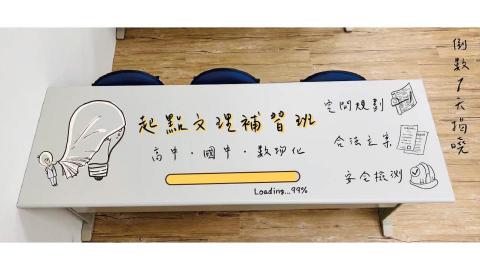 起點文理補習班
高中・國中・數切化
Loading...99%
空間規劃
合法立案
安全檢測
倒數1天揭曉